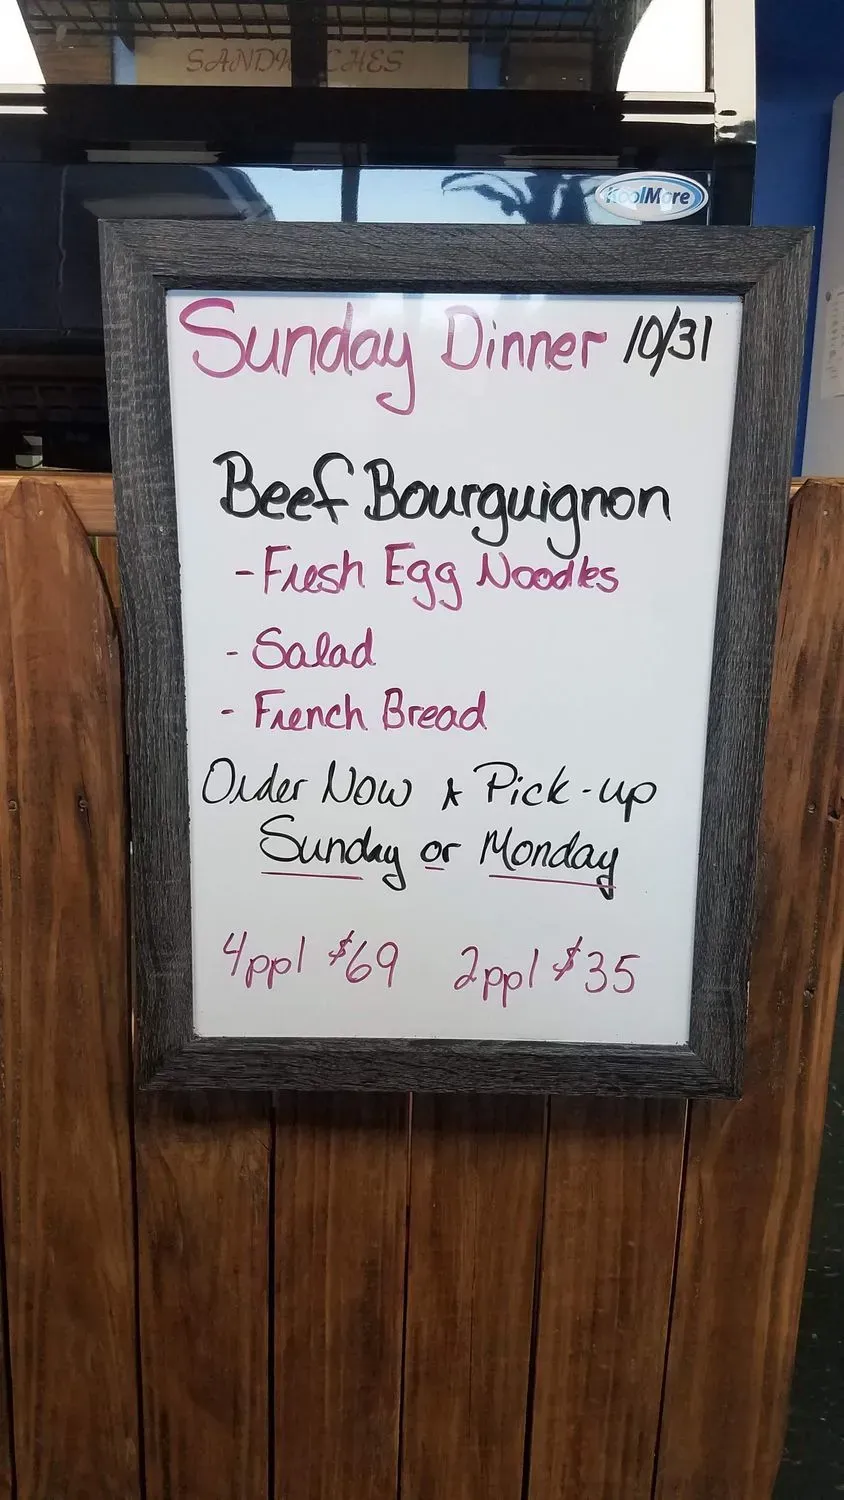 SANDWICHES
KoolMore
Sunday Dinner 10/31
Beef Bourguignon
- Fresh Egg Noodles
- Salad
- French Bread
Order Now & Pick-up
Sunday or Monday
4ppl $69 2ppl $35